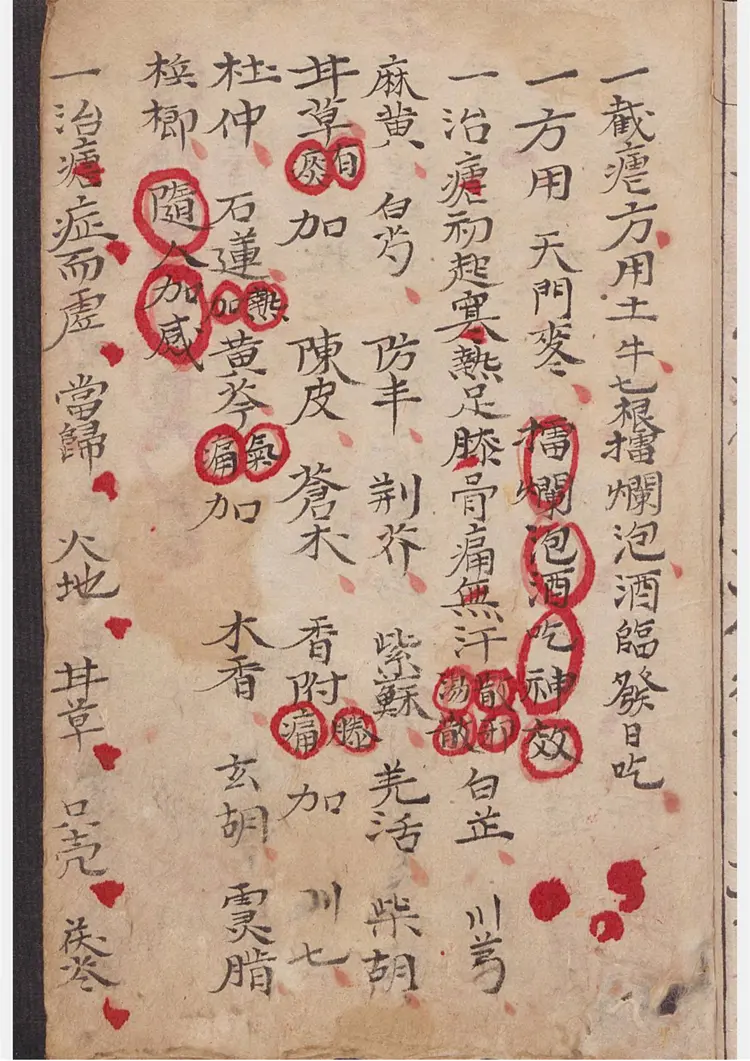 一截瘧方用土牛七根擂爛泡酒臨發日吃
一方用 天門麥冬 擂爛泡酒吃神效
一治瘧初起寒熱足膝骨痛無汗 散卽湯散 白芷 川芎
麻黄 白芍 防丰 荆芥 紫蘇 羌活 柴胡
甘草 有痰加 陳皮 蒼术 香附 膝痛加 川七
杜仲 石蓮 熱加黄芩 氣痛加 木香 玄胡 灵脂
梹榔 隨人加感
一治瘧症而虚 當歸 大地 甘草 只壳 茯苓